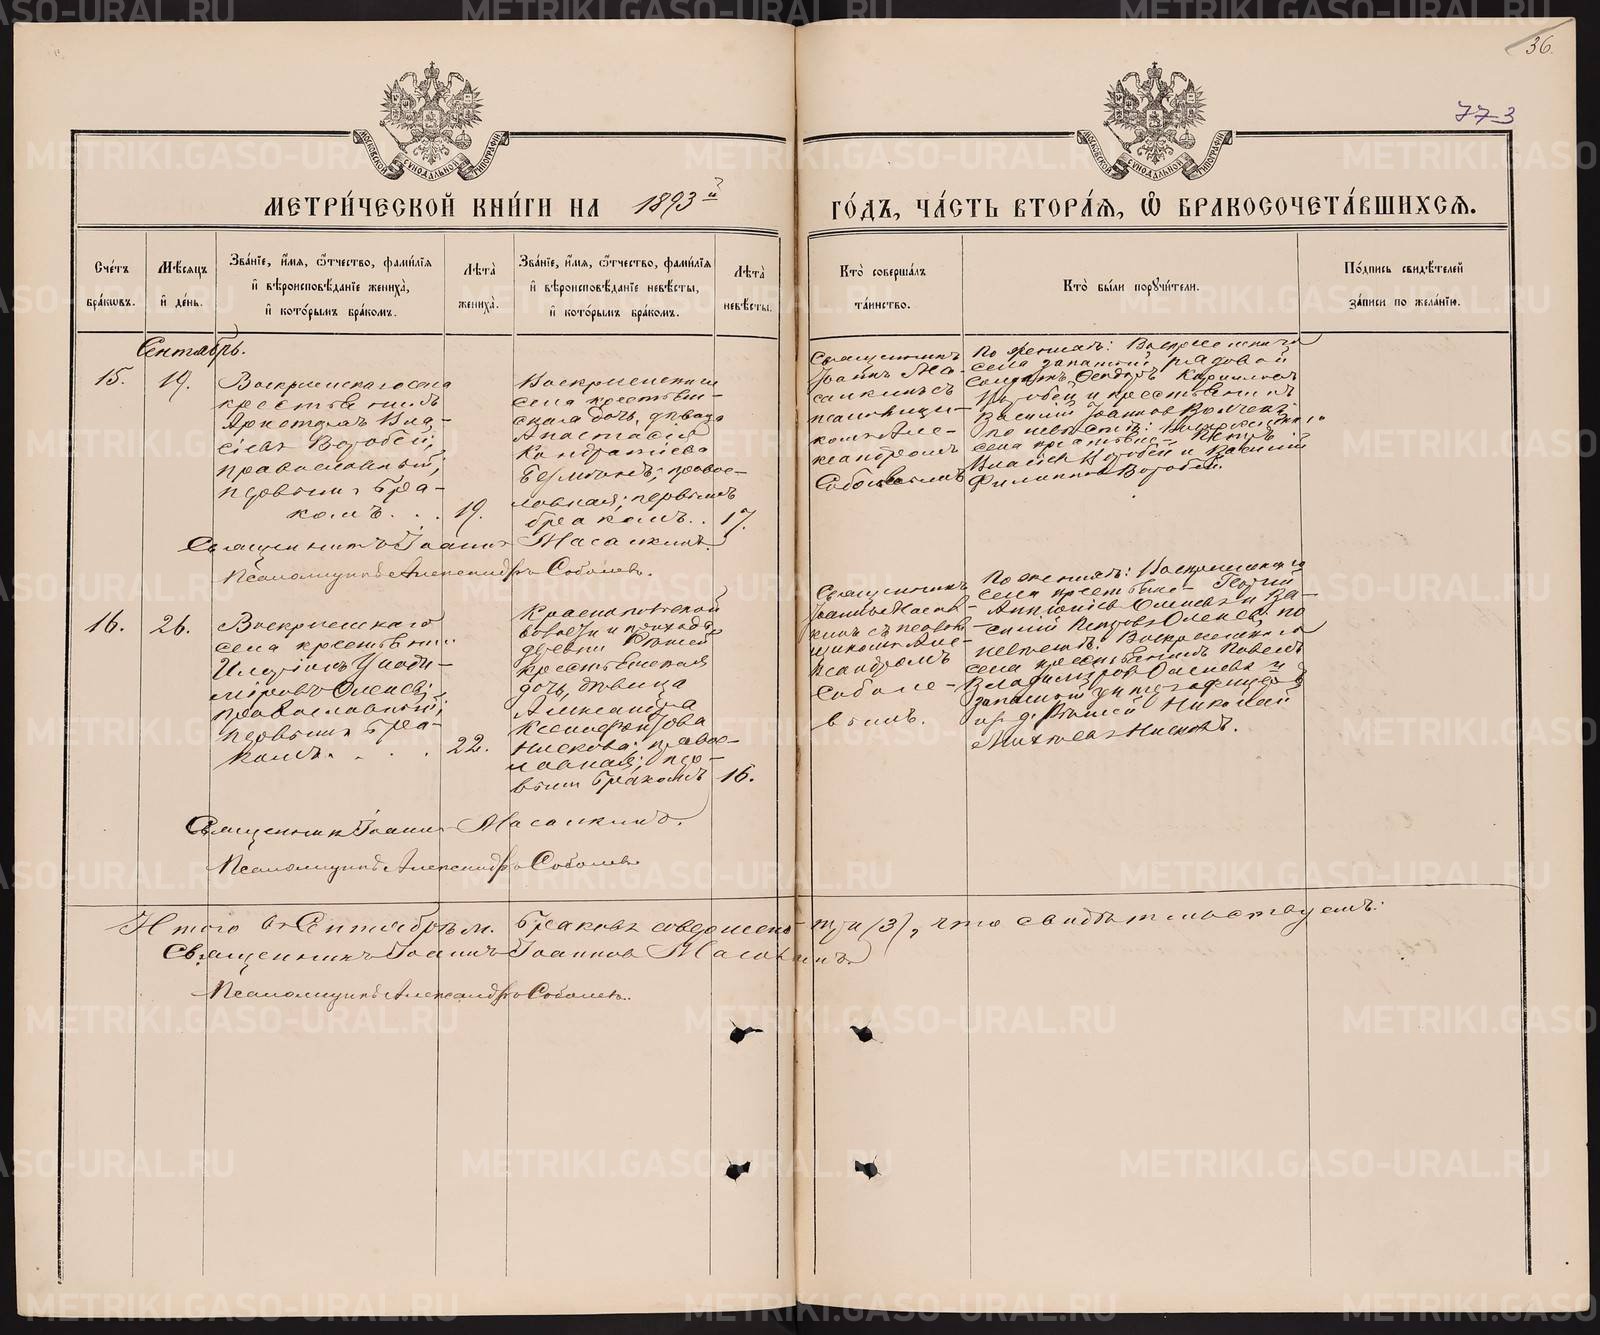 36.
77-3
МОСКОВСКОЙ СѴНОДАЛЬНОЙ ТИПОГРАФІИ
МОСКОВСКОЙ СѴНОДАЛЬНОЙ ТИПОГРАФІИ
МЕТРИ́ЧЕСКОЙ КНИ́ГИ НА 1893й
ГО́ДЪ, ЧА́СТЬ ВТОРА́Я, Ѽ БРАКОСОЧЕТА́ВШИХСЯ.
Сче́тъ бра́кѡвъ.
Мѣ́сяцъ и҆ де́нь.
Зва́нїе, и҆́мя, ѻ҆́тчество, фами́лїя и҆ вѣроисповѣ́данїе жениха̀, и҆ кото́рымъ бра́комъ.
Лѣ́та жениха̀.
Зва́нїе, и҆́мя, ѻ҆́тчество, фами́лїя и҆ вѣроисповѣ́данїе невѣ́сты, и҆ кото́рымъ бра́комъ.
Лѣ́та невѣ́сты.
Кто̀ соверша́лъ та́инство.
Кто̀ бы́ли порꙋчи́тели.
По́дпись свидѣ́телей за́писи по жела́нїю.
Сентябрь.
15.
19.
Воскресенскаго села
крестьянинъ
Аристархъ Вла-
сіевъ Воробей,
православный,
первымъ бра-
комъ . . .
19.
Воскресенскаго
села крестьян-
ская дочь, дѣвица
Анастасія
Кондратіева
православ-
ная; первымъ
бракомъ. .
17.
Священникъ
Іоаннъ Ма-
саикинъ съ
псаломщи-
комъ Але-
ксандромъ
Соболевымъ
По женихѣ: Воскресенскаго
села запасный рядовой
Воробей и крестьянинъ
Василій Іоанновъ
по невѣстѣ: Воскресенскаго
села крестьяне- Петръ
Власіевъ Воробей и Василій
Филипповъ Воробей.
Священникъ Іоаннъ Масаикинъ.
Псаломщикъ Александръ Соболевъ.
16.
26.
Воскресенскаго
села крестьянинъ
Влади-
міровъ Оленевъ;
православный;
первымъ бра-
комъ. . . .
22.
волости и прихода
деревни
крестьянская
дочь, дѣвица
Александра
Ксенофонтова
Нискова; правос-
лавная; пер-
вымъ бракомъ
16.
Священникъ
Іоаннъ Масаи-
кинъ съ псалом-
щикомъ Але-
ксандромъ
Соболе-
вымъ.
По женихѣ: Воскресенскаго
села крестьяне- Георгій
Оленевъ и Ва-
силій Петровъ Оленевъ; по
невѣстѣ: Воскресенскаго
села крестьянинъ Павелъ
Владиміровъ Оленевъ и
запасный унтеръ-офицеръ
Николай
Нисковъ.
Священникъ Іоаннъ Масаикинъ.
Псаломщикъ Александръ Соболевъ
Итого въ Сентябрѣ м. браковъ совершено три (3), что свидѣтельствуемъ:
Священникъ Іоаннъ Іоанновъ Масаикинъ
Псаломщикъ Александръ Соболевъ.
METRIKI.GASO-URAL.RU